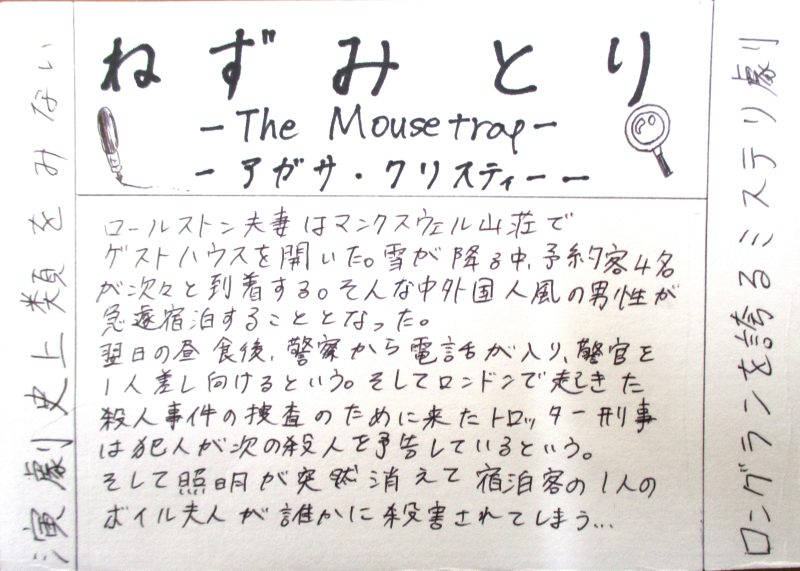 ねずみとり
-The Mousetrap-
-アガサ・クリスティー-
演劇史上類をみない
ロールストン夫妻はマンクスウェル山荘で
ゲストハウスを開いた。雪が降る中、予約客4名
が次々と到着する。そんな中外国人風の男性が
急遽宿泊することとなった。
翌日の昼食後、警察から電話が入り、警官を
1人差し向けるという。そしてロンドンで起きた
殺人事件の捜査のために来たトロッター刑事
は犯人が次の殺人を予告しているという。
そして照明が突然消えて宿泊客の1人の
ボイル夫人が誰かに殺害されてしまう...
ロングランを誇るミステリ劇